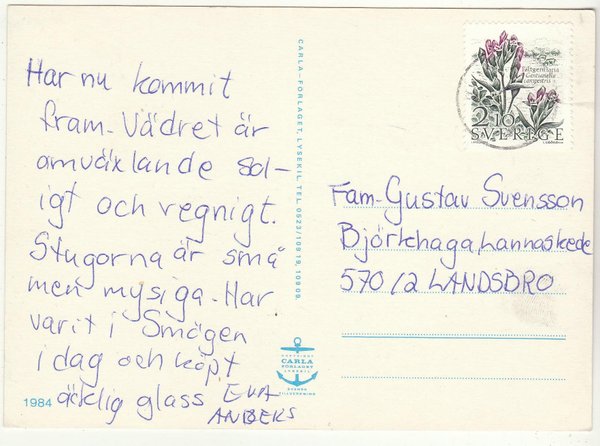 Har nu kommit
fram. Vädret är
omväxlande sol-
igt och regnigt.
Stugorna är små
men mysiga. Har
varit i Smögen
i dag och köpt
äcklig glass Eva
ANBERS
1984
CARLA-FÖRLAGET, LYSEKIL. TEL. 0523/109 19, 109 09.
COPYRIGHT
CARLA
FÖRLAGET
LYSEKIL
SVENSK
TILLVERKNING
Fältgentiana
Gentianella
campestris
2.10
SVERIGE
Fam. Gustav Svensson
Björkhaga, Lannaskede
570 12 LANDSBRO